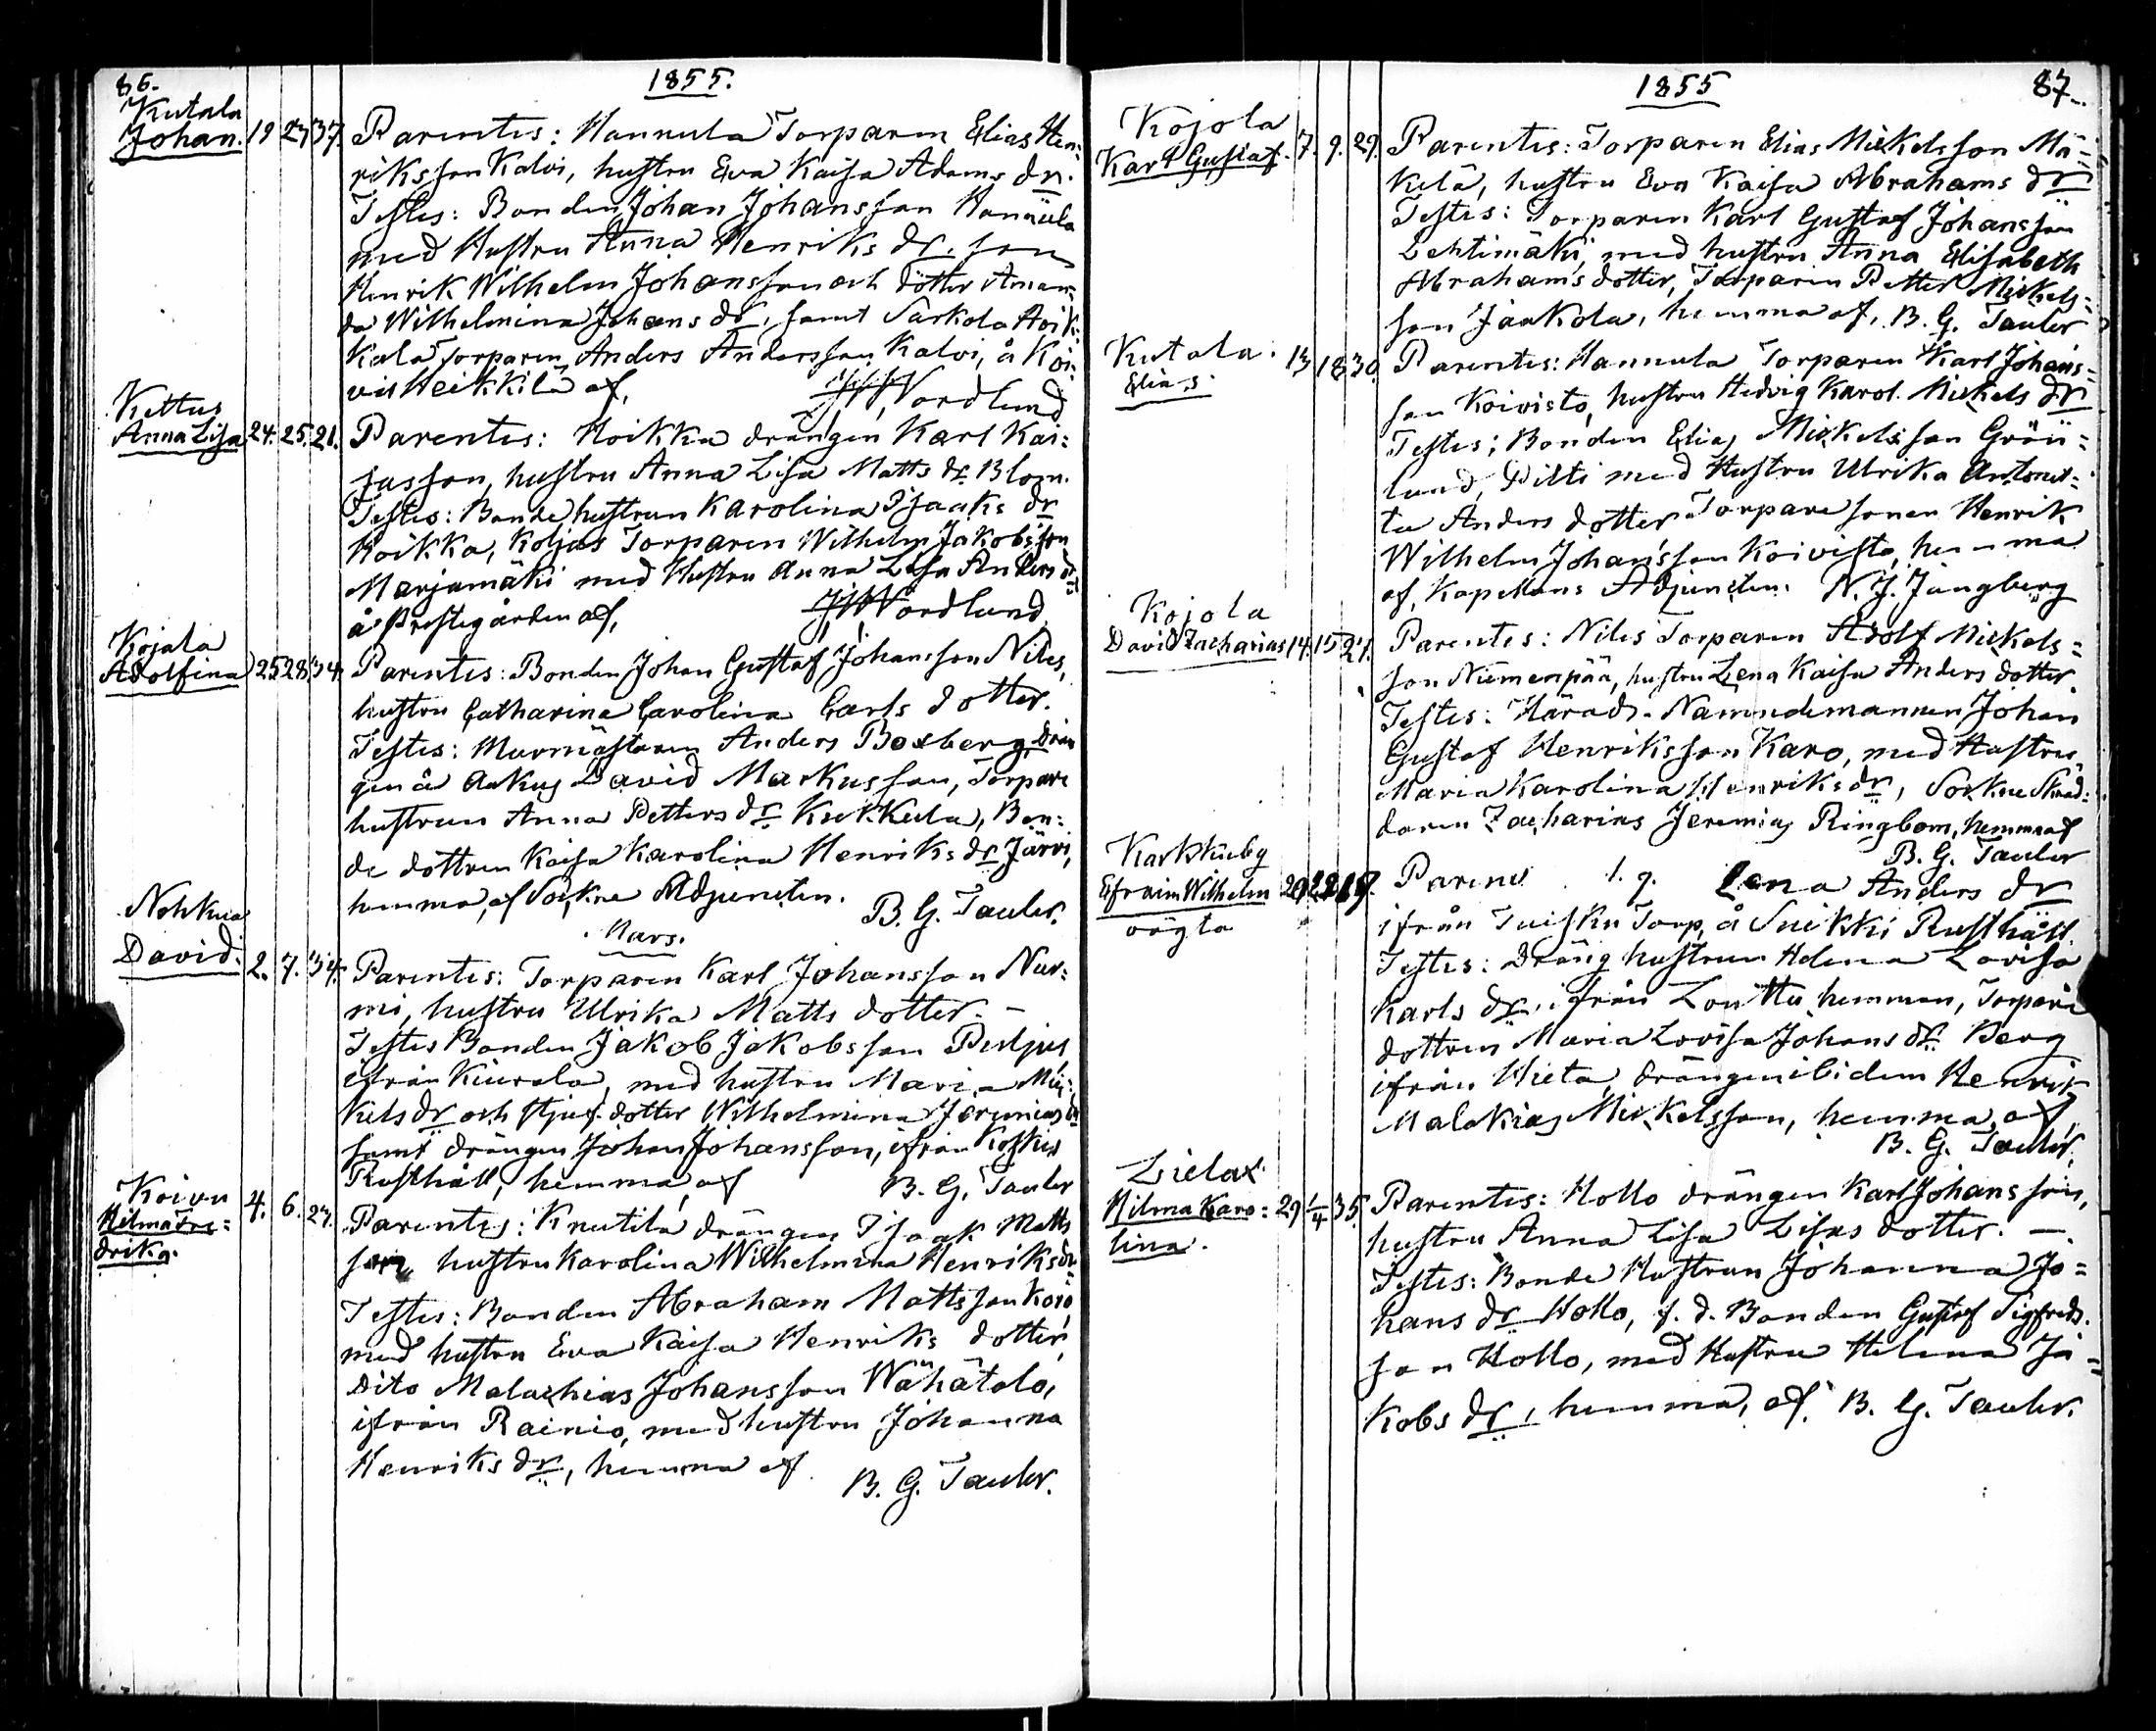 86.
1855.
Kutala
Johan. 19 27 37.
Parentes: Hannula Torparen Elias Hen:
riksson Kalvi, hustru Eva Kaisa Adams dr.
Testes: Bonden Johan Johansson Hannula
med Hustru Anna Henriks dr. son
Henrik Wilhelm Johansson och dotter Aman:
da Wilhelmina Johans dr, samt Sarkola
Torparen Anders Andersson Kalvi, å Koi:
visHeikkilä af, Nordlund
Kettus
Anna Lisa 24. 25. 21.
Parentes: Hoikka drängen Karl Kai:
sasson, hustru Anna Lisa Matts dr Blom.
Testes: Bonde hustrun Karolina Isaaks dr
Hoikka, Koljas Torparen Wilhelm Jakobsson
Marjamäki med Hustru Anna Lisa Anders dr
å Prestegården af, Nordlund
Kojola
Adolfina 25 28 34.
Parentes: Bonden Johan Gustaf Johansson Niles,
hustru Catharina Carolina Carls dotter.
Testes: Murmästaren Anders Boxberg, drän
gen å David Markusson, Torpare
hustrun Anna Petters dr, Bon:
de dottren Kaisa Karolina Henriks dr Järvi,
hemma, af Sokne Adjuncten. B. G. Tauler.
Mars.
Nohkua
David. 2. 7. 34.
Parentes: Torparen Karl Johansson Nur:
mi, hustru Ulrika Matts dotter. –
Testes Bonden Jakob Jakobsson
ifrån Kiurala, med hustru Maria Mic:
kels dr och stjuf dotter Wilhelmina Jeremias dr
samt drängen Johan Johansson, ifrån Koskis
Rusthåll, hemma, af B. G. Tauler
Koivu
Hilma Fre:
drika. 4. 6. 27.
Parentes: Knutila drängen Isaak Matts
son, hustru Karolina Wilhelmina Henriks dr
Testes: Bonden Abraham Mattsson
med hustru Eva Kaisa Henriks dotter,
Dito Malachias Johansson Wähätalo,
ifrån Rainio, med hustru Johanna
Henriks dr, hemma af B. G. Tauler.
1855
87.
Kojola
Karl Gustaf. 7. 9. 29.
Parentes: Torparen Elias Mickelsson Mä=
kelä, hustru Eva Kaisa Abrahams dr
Testes: Torparen Karl Gustaf Johansson
Lehtimäki, med hustru Anna Elisabeth
Abrahams dotter, Torparen Petter Mickels=
son Jaakola, hemma af, B. G. Tauler
Kutala.
Elias. 13 18 30.
Parentes: Hannula Torparen Karl Johans=
son Koivisto, hustru Hedvig Karol. Mickels dr
Testes: Bonden Elias Mickelsson Grön=
lund, Pilti med Hustru Ulrika Antonet=
ta Anders dotter Torpare sonen Henrik
Wilhelm Johansson Koivisto, hemma
af, Kapellans Adjuncten. N. J. Jungberg
Kojola
David Zacharias 14. 15 21.
Parentes: Niles Torparen Adolf Mickels=
son Niemenpää, hustru Lena Kaisa Anders dotter.
Testes: Härads-Nämndemannen Johan
Gustaf Henriksson Karo, med Hustru
Maria Karolina Henriks dr, Sokne Skräd:
daren Zacharias Jeremias Ringbom, hemma af
B. G. Tauler
Efraim Wilhelm
oägta
Parens Lena Anders dr
ifrån Tuisku Torp, å Suikki Rusthåll.
Testes: Dräng hustrun Helena Lovisa
Karls dr, ifrån Louttu hemman, Torpare
dottren Maria Lovisa Johans dr Berg
ifrån Hieta, drängen ibidem Henrik
Malakias Mickelsson, hemma, af
B. G. Tauler.
Lielax
Hilma Karo=
lina. 29 1/4 35.
Parentes: Hollo drängen Karl Johansson,
hustru Anna Lisa Lisas dotter. –
Testes: Bonde Hustrun Johanna Jo=
hans dr Hollo, f. d. Bonden Gustaf Sigfreds
son Hollo, med Hustru Helena Ja=
kobs dr, hemma, af. B. G. Tauler.